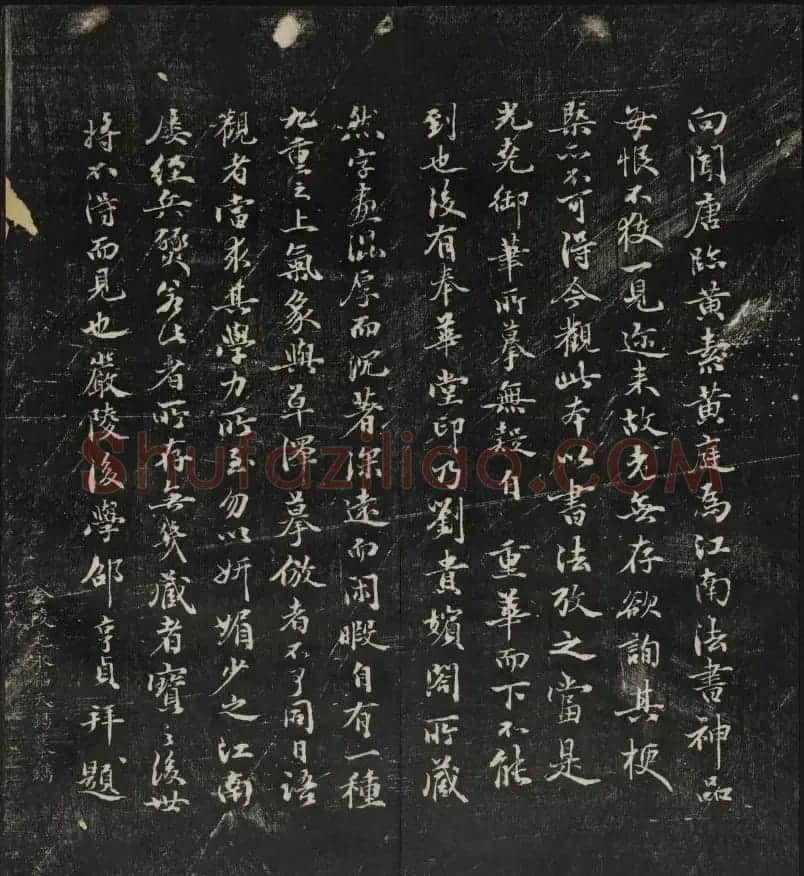 向聞唐臨黃素黃庭為江南法書神品
每恨不獲一見邇来故老無存欲詢其梗
槩亦不可得今觀此本以書法攷之當是
光堯御華所摹無疑自 重華而下不能
到也後有奉華堂印乃劉貴嬪閣所藏
然字畫混厚而沉著深遠而閑暇自有一種
九重之上氣象與草澤摹倣者不可同日語
觀者當求其學力所至勿以妍媚少之江南
屢經兵燹若此者所存無幾藏者寶之後世
將不得而見也嚴陵後學邵亨貞拜題
金陵
Shufaziliao.COM